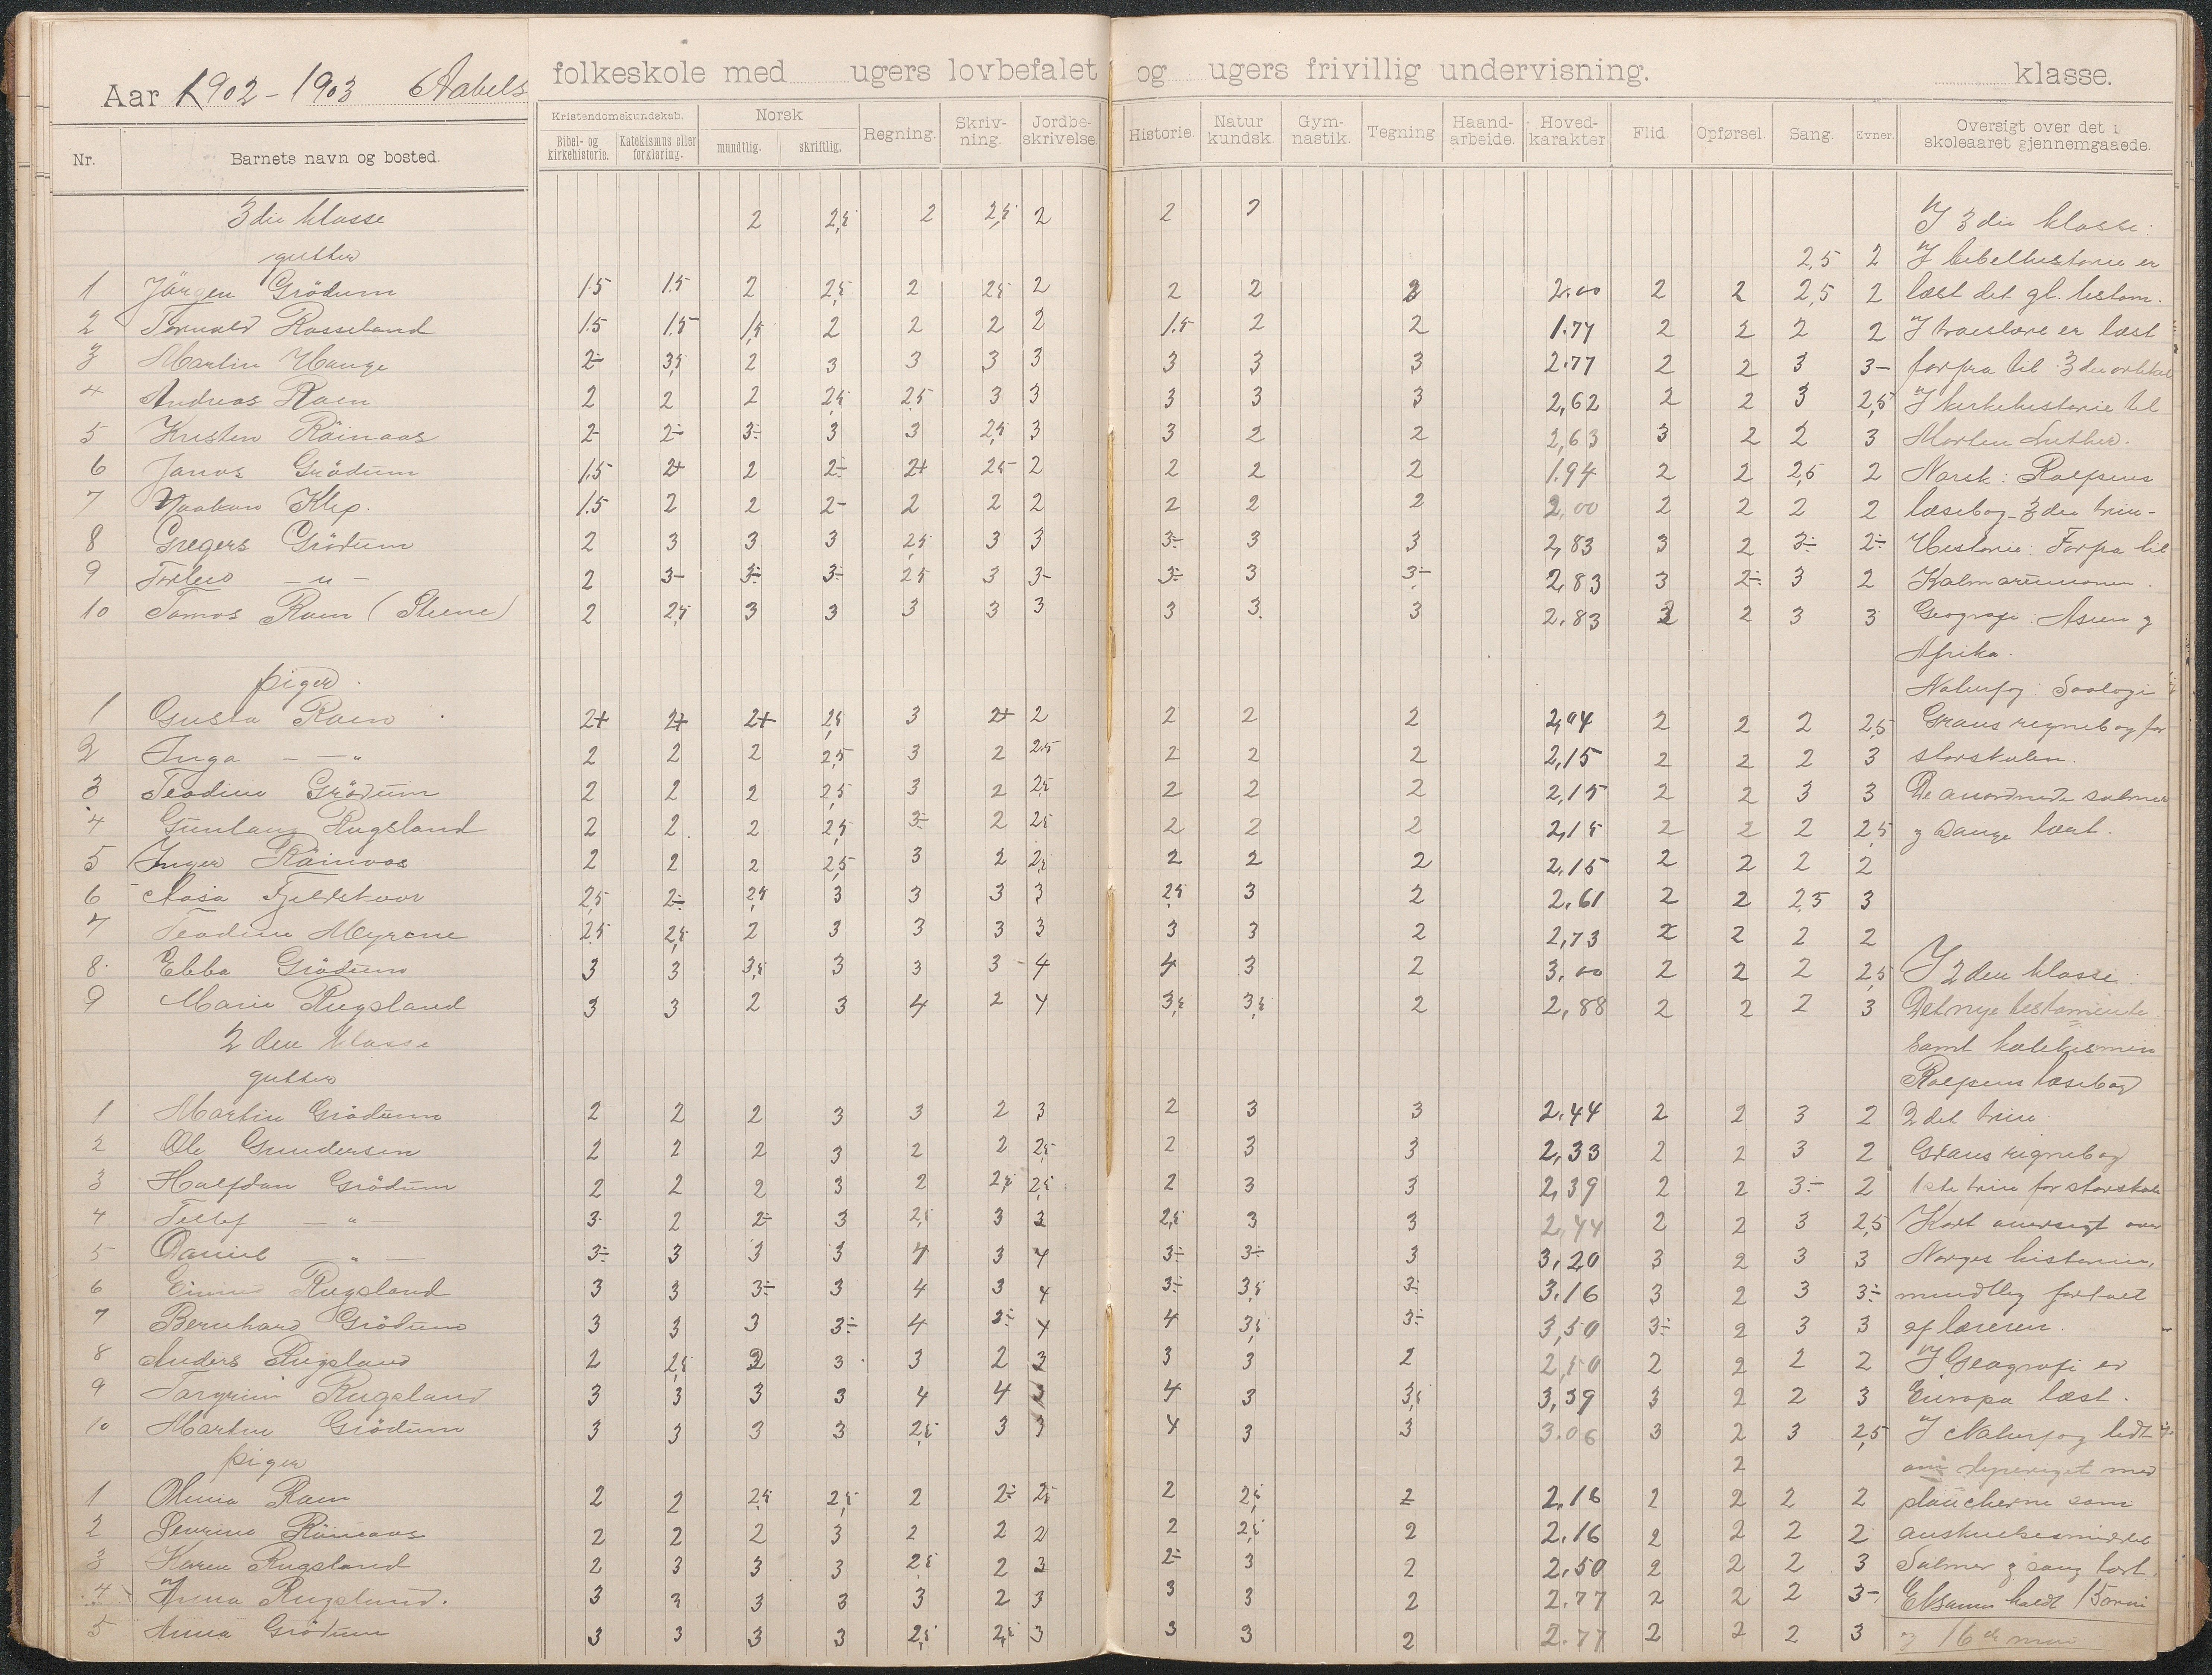 Aar 1902-1903 Aabels folkeskole med ugers lovbefalet og ugers frivillig undervisning. klasse.
Nr. Barnets navn og bosted. Kristendomskundskab. Bibel- og kirkehistorie. Katekismus eller forklaring. Norsk mundtlig. skriftlig. Regning. Skriv-ning. Jordbe-skrivelse. Historie. Natur kundsk. Gym-nastik. Tegning Haand-arbeide. Hoved-karakter Flid. Opførsel. Sang. Evner. Oversigt over det i skoleaaret gjennemgaaede.
3die klasse 2 2,5 2 2,5 2 2 2 I 3die klasse:
gutter 2,5 2 I bibelhistorie er
1 Jörgen Grödum 1.5 1.5 2 2,5 2 2,5 2 2 2 2 2.00 2 2 2,5 2 læst det gl. testam.
2 Torvald Rosseland 1.5 1.5 1,5 2 2 2 2 1.5 2 2 1.77 2 2 2 2 I troeslære er læst
3 Martin Hauge 2÷ 3,5 2 3 3 3 3 3 3 3 2.77 2 2 3 3- forfra til 3die artikel
4 Andreas Roen 2 2 2 2,5 2.5 3 3 3 3 3 2,62 2 2 3 2,5 I kirkehistorie til
5 Kristen Röinaas 2- 2÷ 3÷ 3 3 2,5 3 3 2 2 2,63 3 2 2 3 Morten Luther.
6 Janos Grödum 1.5 2+ 2 2÷ 2+ 2.5 2 2 2 2 1.94 2 2 2,5 2 Norsk: Rolfsens
7 Haakon Klep. 1.5 2 2 2- 2 2 2 2 2 2 2,00 2 2 2 2 læsebog 3die trin-
8 Gregers Grödum 2 3 3 3 2,5 3 3 3÷ 3 3 2,83 3 2 3÷ 2÷ Historie: Forfra til
9 -"- 2 3- 3÷ 3÷ 2.5 3 3- 3÷ 3 3÷ 2,83 3 2÷ 3 2 Kalmarunionen.
10 Tomas Roen (Steene) 2 2,5 3 3 3 3 3 3 3. 3 2.83 2 3 3 Geografi: Asien og
Afrika.
piger. Naturfag: Soologi
1 Gusta Roen 2+ 2+ 2+ 2,5 3 2+ 2 2 2 2 2,04 2 2 2 2,5 Graus regnebog for
2 Inga -"- 2 2 2 2,5 3 2 2.5 2 2 2 2,15 2 2 2 3 storskolen.
3 Teodine Grödum 2 2 2 2,5 3 2 2,5 2 2 2 2,15 2 2 3 3 De anordnede salmer
4 Gunlaug Rugsland 2 2 2 2,5 3÷ 2 2,5 2 2 2 2,15 2 2 2 2,5 og sange lært.
5 Inger Röinaas 2 2 2 2,5 3 2 2,5 2 2 2 2,15 2 2 2 2
6 Aasa Fjeldskaar 2,5 2÷ 2,5 3 3 3 3 2,5 3 2 2,61 2 2 2,5 3
7 Teodine Myrene 2,5 2,5 2 3 3 3 3 3 3 2 2,73 2 2 2 2
8 Ebba Grödum 3 3 3,5 3 3 3 4 4 3 2 3,00 2 2 2 2,5 I 2den klasse:
9 Marie Rugsland 3 3 2 3 4 2 4 3,5 3,5 2 2,88 2 2 2 3 Det nye testamente
2den klasse samt katekismen
gutter Rolfsens læsebog
1 Martin Grödum 2 2 2 3 3 2 3 2 3 3 2.44 2 2 3 2 2det trin.
2 Ole Gundersen 2 2 2 3 2 2 2,5 2 3 3 2,33 2 2 3 2 Graus regnebog
3 Halfdan Grödum 2 2 2 3 2 2,5 2,5 2 3 3 2,39 2 2 3- 2 1ste trin for storskole
4 Tellef -"- 3 2 2÷ 3 2,5 3 3 2,5 3 3 2,44 2 2 3 2,5 Kort oversigt over
5 Daniel -"- 3÷ 3 3 3 4 3 4 3÷ 3÷ 3 3,20 3 2 3 3 Norges historie,
6 Rugsland 3 3 3÷ 3 4 3 4 3÷ 3,5 3÷ 3.16 3 2 3 3÷ mundtlig fortalt
7 Bernhard Grödum 3 3 3 3÷ 4 3÷ 4 4 3,5 3÷ 3,50 3÷ 2 3 3 af læreren.
8 Anders Rugsland 2 2,5 2 3 3 2 3 3 3 2 2,50 2 2 2 2 I Geografi er
9 Torgrim Rugsland 3 3 3 3 4 4 3 4 3 3,5 3,39 3 2 2 3 Europa læst.
10 Martin Grödum 3 3 3 3 2,5 3 3 4 3 3 3.06 3 2 3 2,5 I Naturfag lidt
piger 2 om dyreriget med
1 Olivia Roen 2 2 2,5 2,5 2 2÷ 2,5 2 2,5 2 2.16 2 2 2 2 plancherne som
2 Severine Röinaas 2 2 2 3 2 2 2 2 2,5 2 2.16 2 2 2 2 anskuelsesmiddel
3 Karen Rugsland 2 3 3 3 2,5 2 3 2÷ 3 2 2.50 2 2 2 3 Salmer og sang lært.
4 Anna Rugsland. 3 3 3 3 3 2 3 3 3 2 2.77 2 2 2 3- Eksamen holdt 15
5 Anna Grödum 3 3 3 3 2,5 2,5 3 3 3 2 2.77 2 2 2 3 og 16de